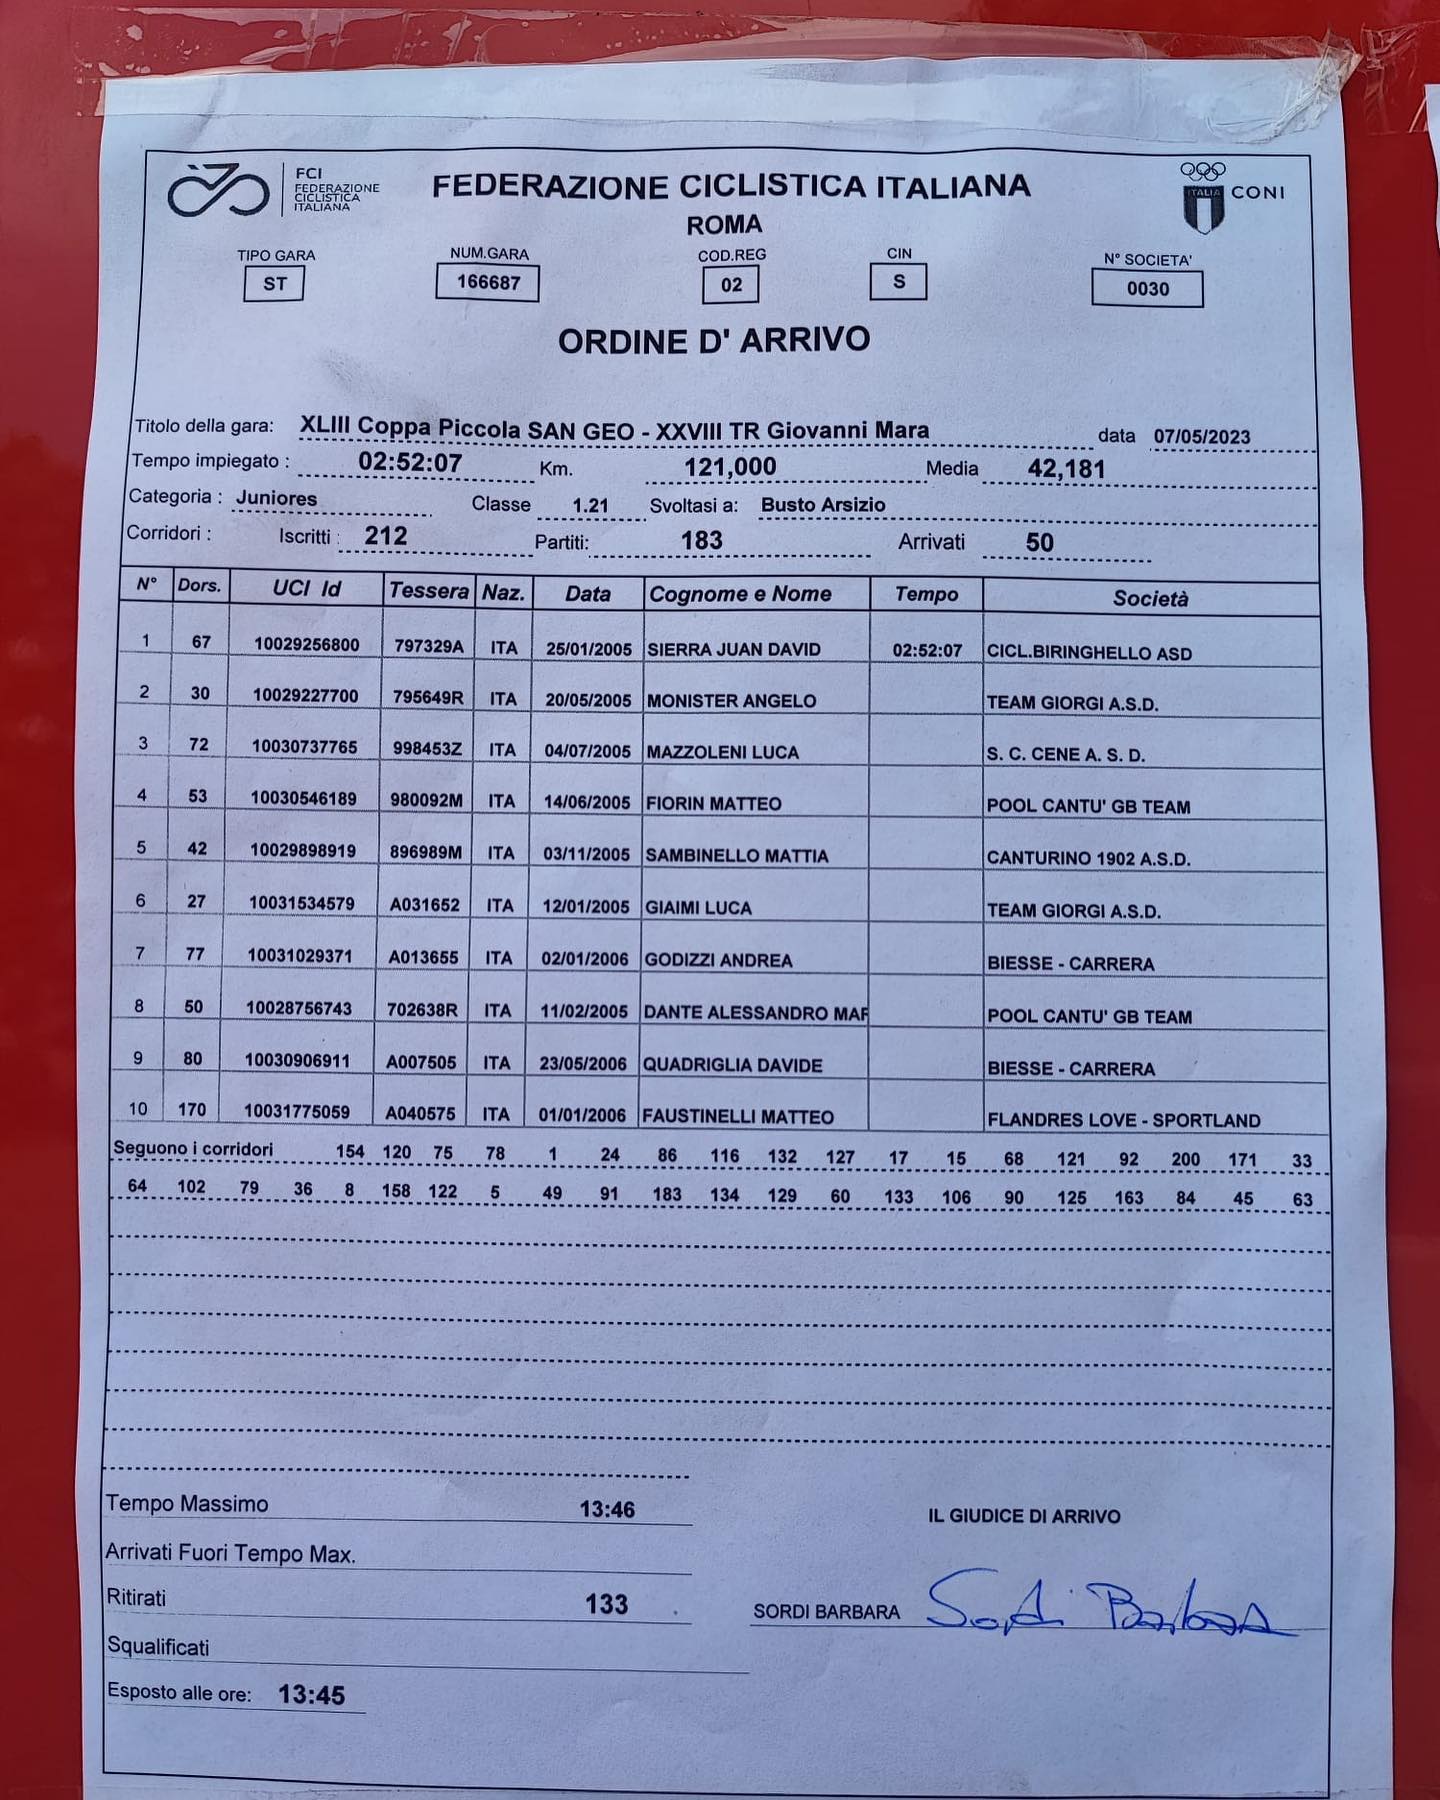 FCI
FEDERAZIONE
CICLISTICA
ITALIANA
FEDERAZIONE CICLISTICA ITALIANA
ROMA
ITALIA
CONI
TIPO GARA NUM.GARA COD.REG CIN N° SOCIETA'
ST 166687 02 S 0030
ORDINE D' ARRIVO
Titolo della gara: XLIII Coppa Piccola SAN GEO - XXVIII TR Giovanni Mara data 07/05/2023
Tempo impiegato : 02:52:07 Km. 121,000 Media 42,181
Categoria : Juniores Classe 1.21 Svoltasi a: Busto Arsizio
Corridori : Iscritti : 212 Partiti: 183 Arrivati 50
N° Dors. UCI Id Tessera Naz. Data Cognome e Nome Tempo Società
1 67 10029256800 797329A ITA 25/01/2005 SIERRA JUAN DAVID 02:52:07 CICL.BIRINGHELLO ASD
2 30 10029227700 795649R ITA 20/05/2005 MONISTER ANGELO TEAM GIORGI A.S.D.
3 72 10030737765 998453Z ITA 04/07/2005 MAZZOLENI LUCA S. C. CENE A. S. D.
4 53 10030546189 980092M ITA 14/06/2005 FIORIN MATTEO POOL CANTU' GB TEAM
5 42 10029898919 896989M ITA 03/11/2005 SAMBINELLO MATTIA CANTURINO 1902 A.S.D.
6 27 10031534579 A031652 ITA 12/01/2005 GIAIMI LUCA TEAM GIORGI A.S.D.
7 77 10031029371 A013655 ITA 02/01/2006 GODIZZI ANDREA BIESSE - CARRERA
8 50 10028756743 702638R ITA 11/02/2005 DANTE ALESSANDRO MAR POOL CANTU' GB TEAM
9 80 10030906911 A007505 ITA 23/05/2006 QUADRIGLIA DAVIDE BIESSE - CARRERA
10 170 10031775059 A040575 ITA 01/01/2006 FAUSTINELLI MATTEO FLANDRES LOVE - SPORTLAND
Seguono i corridori 154 120 75 78 1 24 86 116 132 127 17 15 68 121 92 200 171 33
64 102 79 36 8 158 122 5 49 91 183 134 129 60 133 106 90 125 163 84 45 63
Tempo Massimo 13:46
IL GIUDICE DI ARRIVO
Arrivati Fuori Tempo Max.
Ritirati 133
SORDI BARBARA Sordi Barbara
Squalificati
Esposto alle ore: 13:45